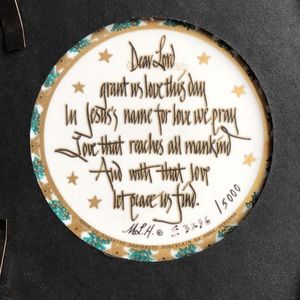 Dear Lord
grant us love this day
In Jesus's name for love we pray
Love that reaches all mankind
And with that love
let peace us find.
M.L.H. © E 3236 /5000
PORCELAIN